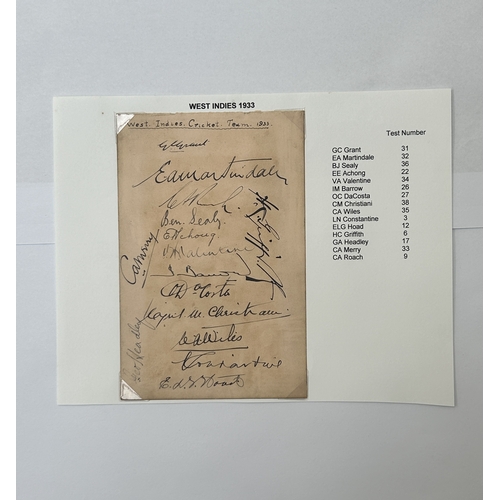 WEST INDIES 1933
West. Indies. Cricket. Team. 1933.
GCGrant
EAMartindale
Ben. Sealy.
EAchong
I Barrow
O Da Costa
Cyril M. Christiani
CAWiles
E.L.G. Hoad
CAMerry
HCGriffith
GA Headley
Test Number
GC Grant 31
EA Martindale 32
BJ Sealy 36
EE Achong 22
VA Valentine 34
IM Barrow 26
OC DaCosta 27
CM Christiani 38
CA Wiles 35
LN Constantine 3
ELG Hoad 12
HC Griffith 6
GA Headley 17
CA Merry 33
CA Roach 9